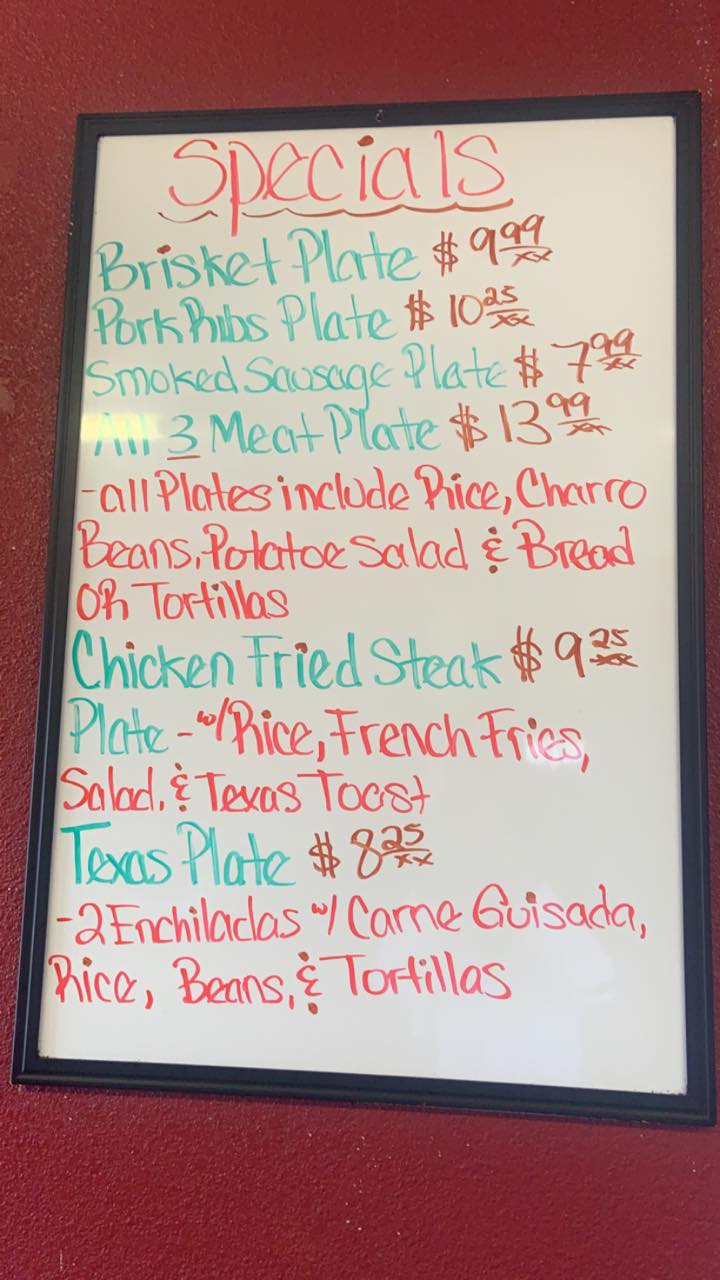 Specials
Brisket Plate $ 9 99/xx
Pork Ribs Plate $ 10 25/xx
Smoked Sausage Plate $ 7 99/xx
All 3 Meat Plate $ 13 99/xx
- all Plates include Rice, Charro
Beans, Potatoe Salad & Bread
OR Tortillas
Chicken Fried Steak $ 9 25/xx
Plate - w/ Rice, French Fries,
Salad, & Texas Toast
Texas Plate $ 8 25/xx
- 2 Enchiladas w/ Carne Guisada,
Rice, Beans, & Tortillas